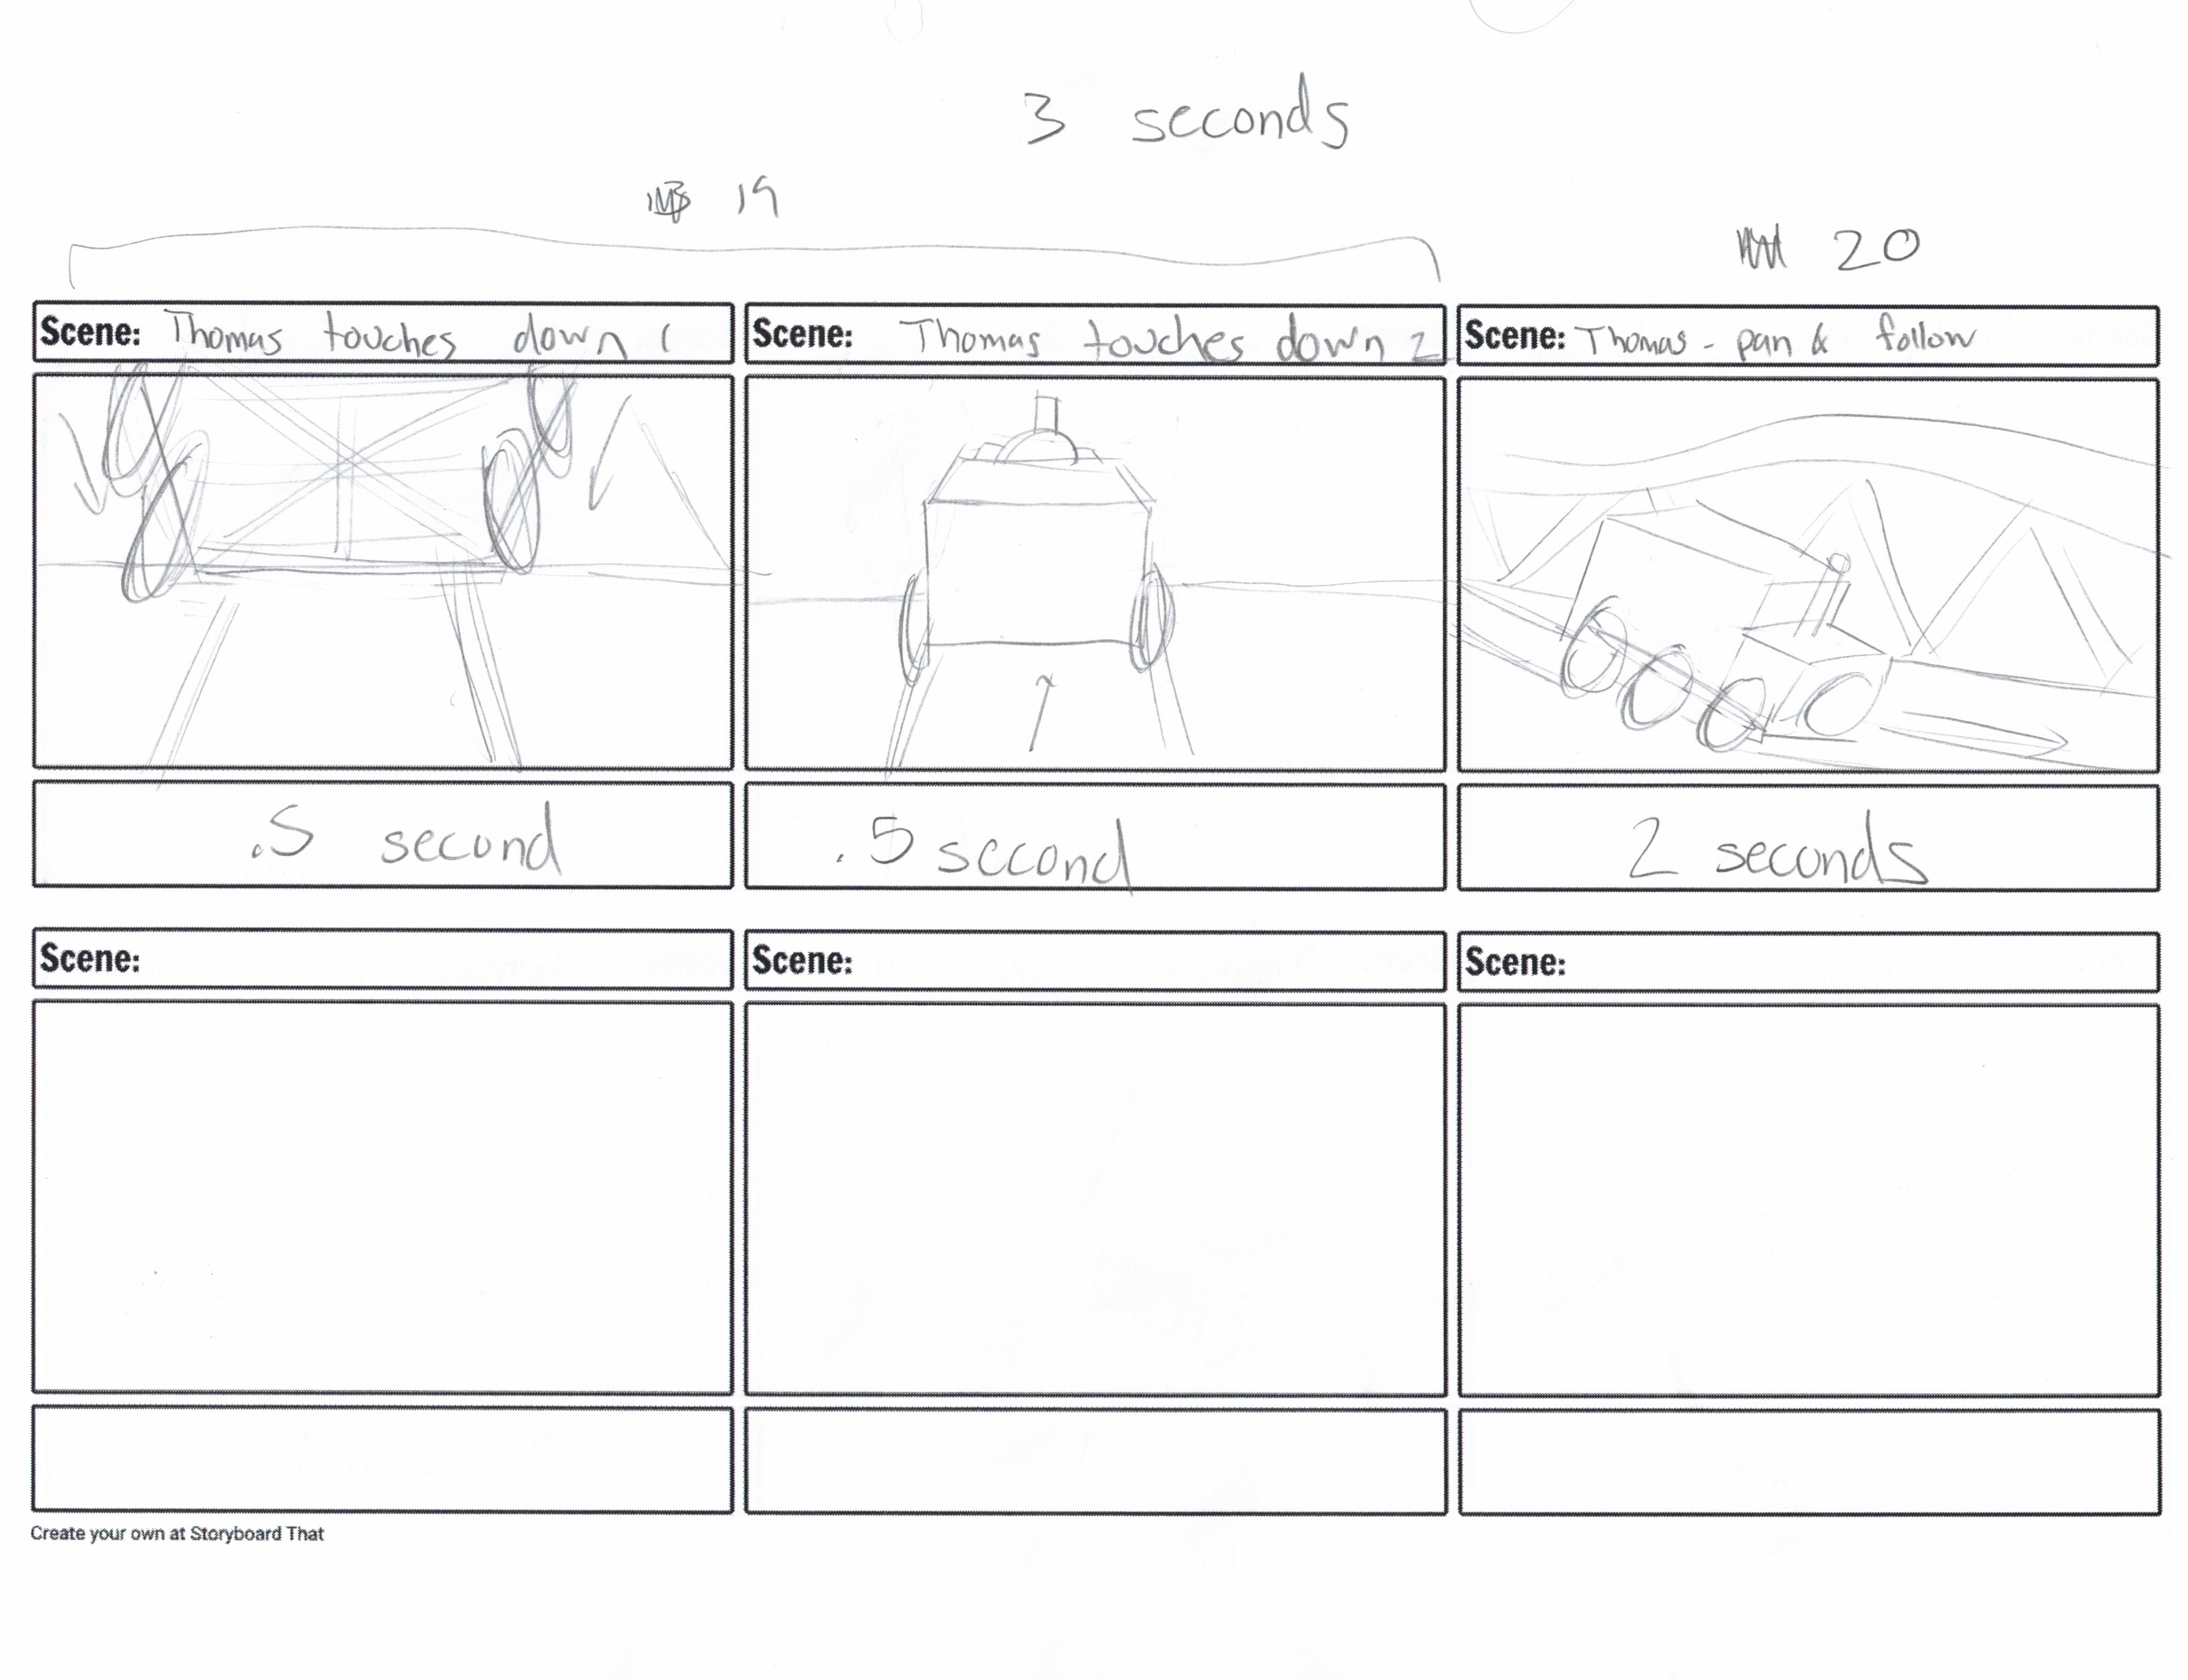 3 seconds
19
20
Scene: Thomas touches down 1
Scene: Thomas touches down 2
Scene: Thomas - pan & follow
.5 second
.5 second
2 seconds
Scene:
Scene:
Scene:
Create your own at Storyboard That